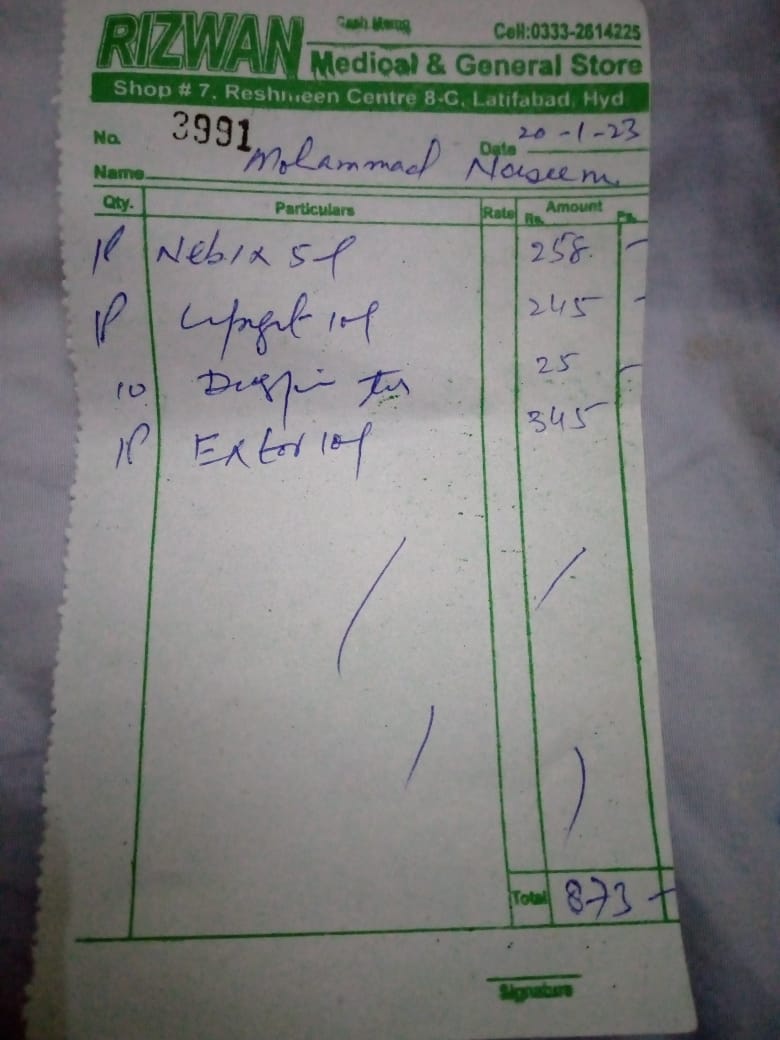 RIZWAN
Cash Memo
Cell:0333-2614225
Medical & General Store
Shop # 7, Reshmeen Centre 8-C, Latifabad, Hyd
No. 3991
Date 20-1-23
Name Mohammad Naseem
Qty. Particulars Rate Amount
Rs. Ps.
1P Nebix 5 258 -
1P 245 -
10 25 -
1P Extor 345 -
Total 873 -
Signature